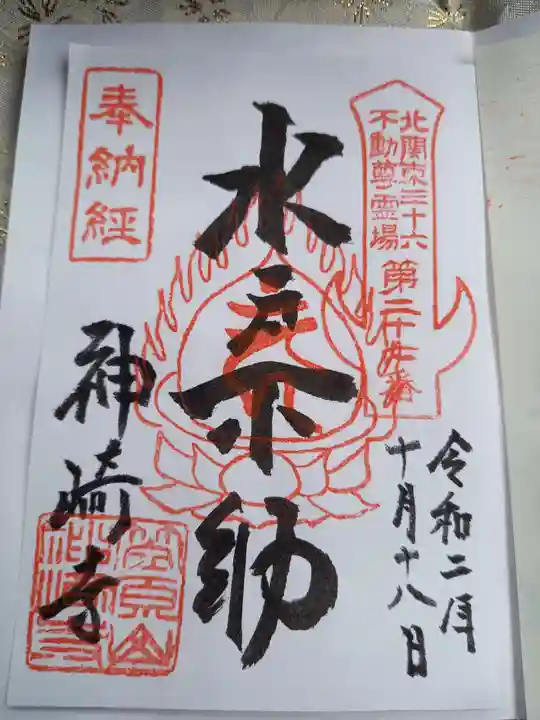 奉納経
北関東三十六
不動尊霊場
第二十九番
水戸不動
神崎寺
令和二年
十月十八日